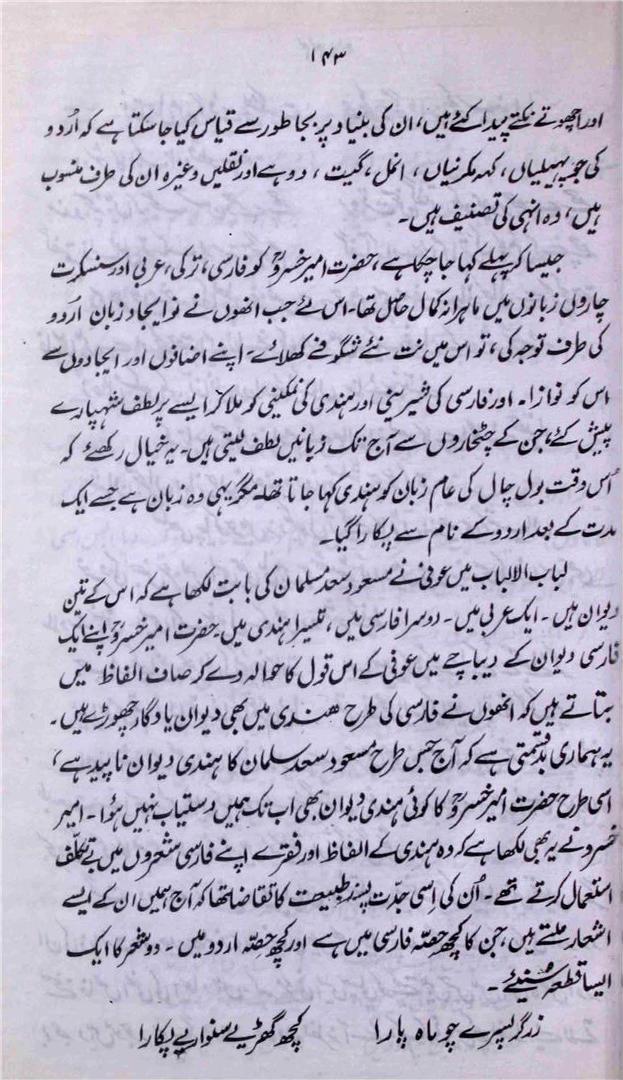 ۱۴۳
اور اچھوتے نکتے پیدا کئے ہیں، ان کی بنیاد پر بجا طور سے قیاس کیا جا سکتا ہے کہ اُردو
کی جو پہیلیاں، کہہ مکرنیاں، انمل، گیت، دوہے اور نقلیں وغیرہ ان کی طرف منسوب
ہیں، وہ انہی کی تصنیف ہیں۔
جیسا کہ پہلے کہا جا چکا ہے، حضرت امیر خسروؒ کو فارسی، ترکی، عربی اور سنسکرت
چاروں زبانوں میں ماہرانہ کمال حاصل تھا۔ اس لئے جب انھوں نے نو ایجاد زبان اُردو
کی طرف توجہ کی، تو اس میں نت نئے شگوفے کھلائے۔ اپنے اضافوں اور ایجادوں سے
اس کو نوازا۔ اور فارسی کی شیرینی اور ہندی کی نمکینی کو ملا کر ایسے پرلطف شہپارے
پیش کئے، جن کے چٹخاروں سے آج تک زبانیں لطف لیتی ہیں۔ یہ خیال رکھئے کہ
اُس وقت بول چال کی عام زبان کو ہندی کہا جاتا تھا۔ مگر یہی وہ زبان ہے جسے ایک
مدت کے بعد اردو کے نام سے پکارا گیا۔
لباب الالباب میں عوفی نے مسعود سعد سلمان کی بابت لکھا ہے کہ اس کے تین
دیوان ہیں۔ ایک عربی میں۔ دوسرا فارسی میں، تیسرا ہندی میں۔ حضرت امیر خسروؒ اپنے ایک
فارسی دیوان کے دیباچے میں عوفی کے اس قول کا حوالہ دے کر صاف الفاظ میں
بتاتے ہیں کہ انھوں نے فارسی کی طرح ہندی میں بھی دیوان یادگار چھوڑے ہیں۔
یہ ہماری بدقسمتی ہے کہ آج جس طرح مسعود سعد سلمان کا ہندی دیوان ناپید ہے،
اسی طرح حضرت امیر خسروؒ کا کوئی ہندی دیوان بھی اب تک ہمیں دستیاب نہیں ہؤا۔ امیر
خسرو نے یہ بھی لکھا ہے کہ وہ ہندی کے الفاظ اور فقرے اپنے فارسی شعروں میں بے تکلّف
استعمال کرتے تھے۔ اُن کی اِسی جدّت پسند طبیعت کا تقاضا تھا کہ آج ہمیں ان کے ایسے
اشعار ملتے ہیں، جن کا کچھ حصّہ فارسی میں ہے اور کچھ حصّہ اردو میں۔ دو شعر کا ایک
ایسا قطعہ سُنیئے۔
زرگر پسرے چو ماہ پارا کچھ گھڑیے سنواریے پکارا